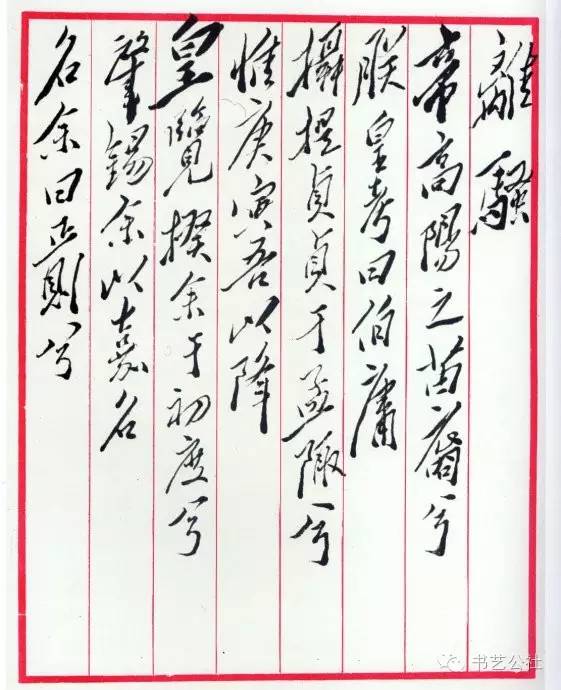 離騷
帝高陽之苗裔兮
朕皇考曰伯庸
攝提貞貞于孟陬兮
惟庚寅吾以降
皇覽揆余于初度兮
肇錫余以嘉名
名余曰正則兮
书艺公社